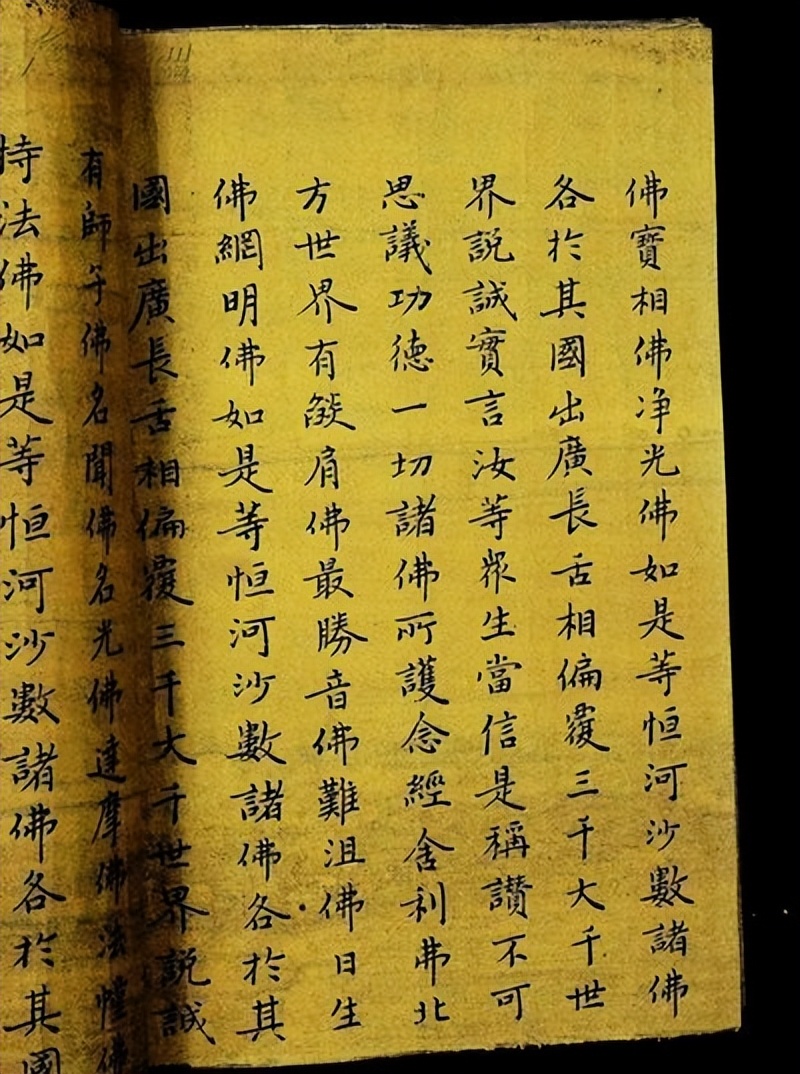 佛寶相佛净光佛如是等恒河沙數諸佛
各於其國出廣長舌相偏覆三千大千世
界説誠實言汝等眾生當信是稱讃不可
思議功德一切諸佛所護念經舍利弗北
方世界有燄肩佛最勝音佛難沮佛日生
佛網明佛如是等恒河沙數諸佛各於其
國出廣長舌相偏覆三千大千世界説誠
有師子佛名聞佛名光佛達摩佛法幢佛
持法佛如是等恒河沙數諸佛各於其國